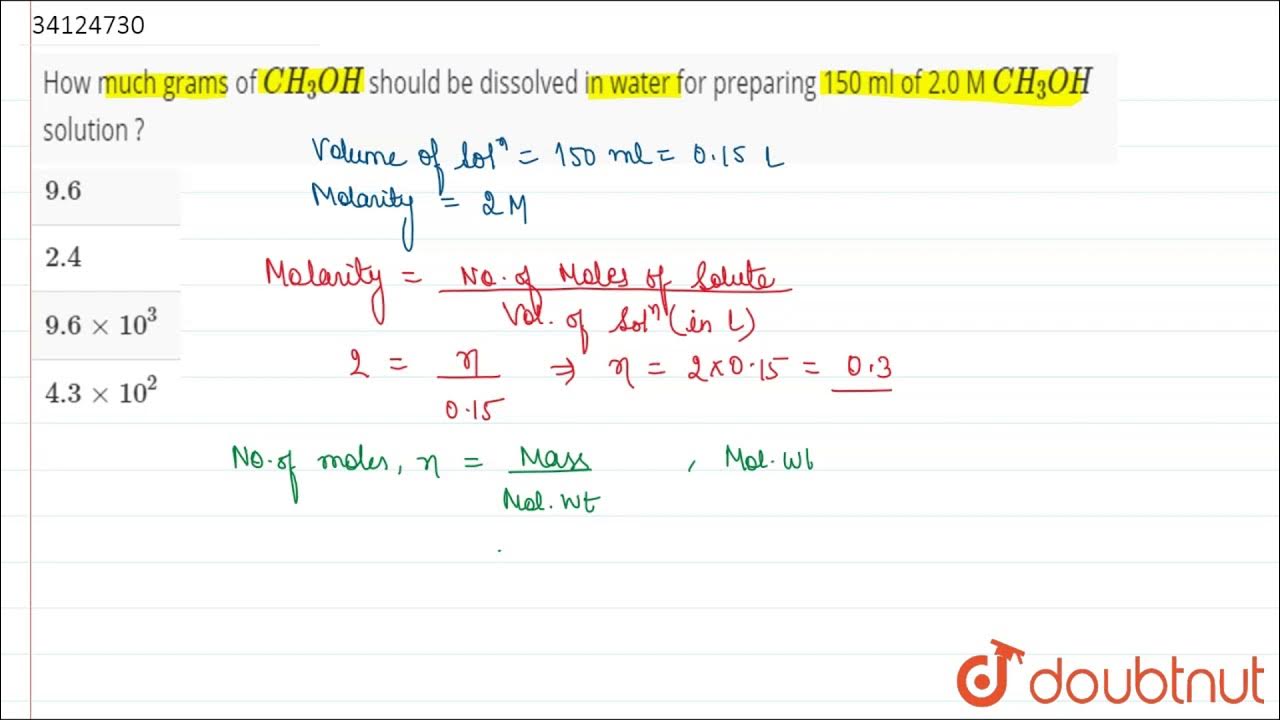 34124730
How much grams of CH₃OH should be dissolved in water for preparing 150 ml of 2.0 M CH₃OH
solution ?
9.6
2.4
9.6 × 10³
4.3 × 10²
Volume of Solⁿ = 150 ml = 0.15 L
Molarity = 2 M
Molarity = No. of Moles of Solute
Vol. of Solⁿ (in L)
2 = η ⇒ η = 2×0.15 = 0.3
0.15
No. of moles, η = Mass , Mol. Wt
Mol. Wt
doubtnut